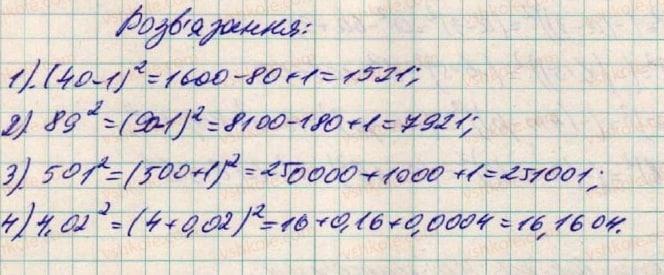 Розв'язання:
1). (40-1)² = 1600 - 80 + 1 = 1521;
2) 89² = (90-1)² = 8100 - 180 + 1 = 7921;
3) 501² = (500+1)² = 250000 + 1000 + 1 = 251001;
4) 4,02² = (4+0,02)² = 16 + 0,16 + 0,0004 = 16,1604.